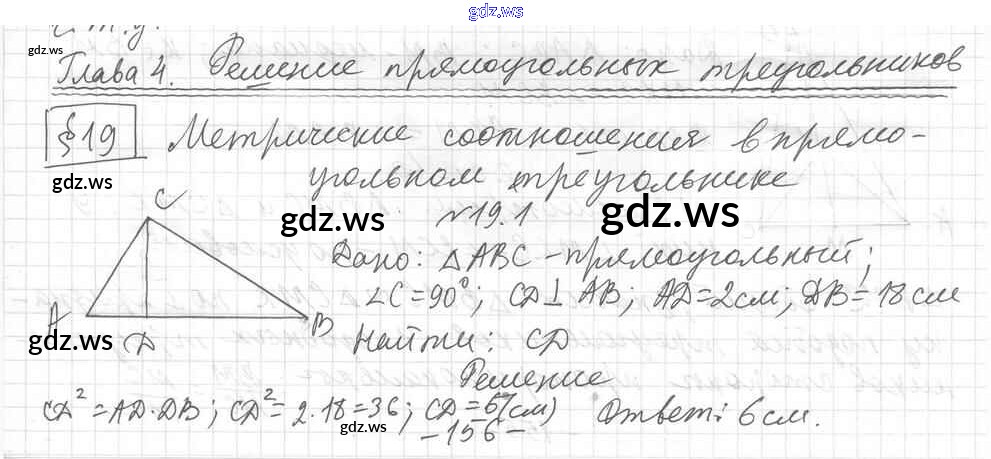 gdz.ws
ч.т.д.
gdz.ws
Глава 4. Решение прямоугольных треугольников
§19 Метрические соотношения в прямо-
gdz.ws
угольном треугольнике
gdz.ws
№19.1
gdz.ws
C
Дано: △ABC - прямоугольный;
∠C=90°; CD⊥AB; AD=2см; DB=18см
A
B
gdz.ws
D
Найти: CD
Решение
CD²=AD·DB; CD²=2·18=36; CD=6(см) Ответ: 6см.
gdz.ws
-156-